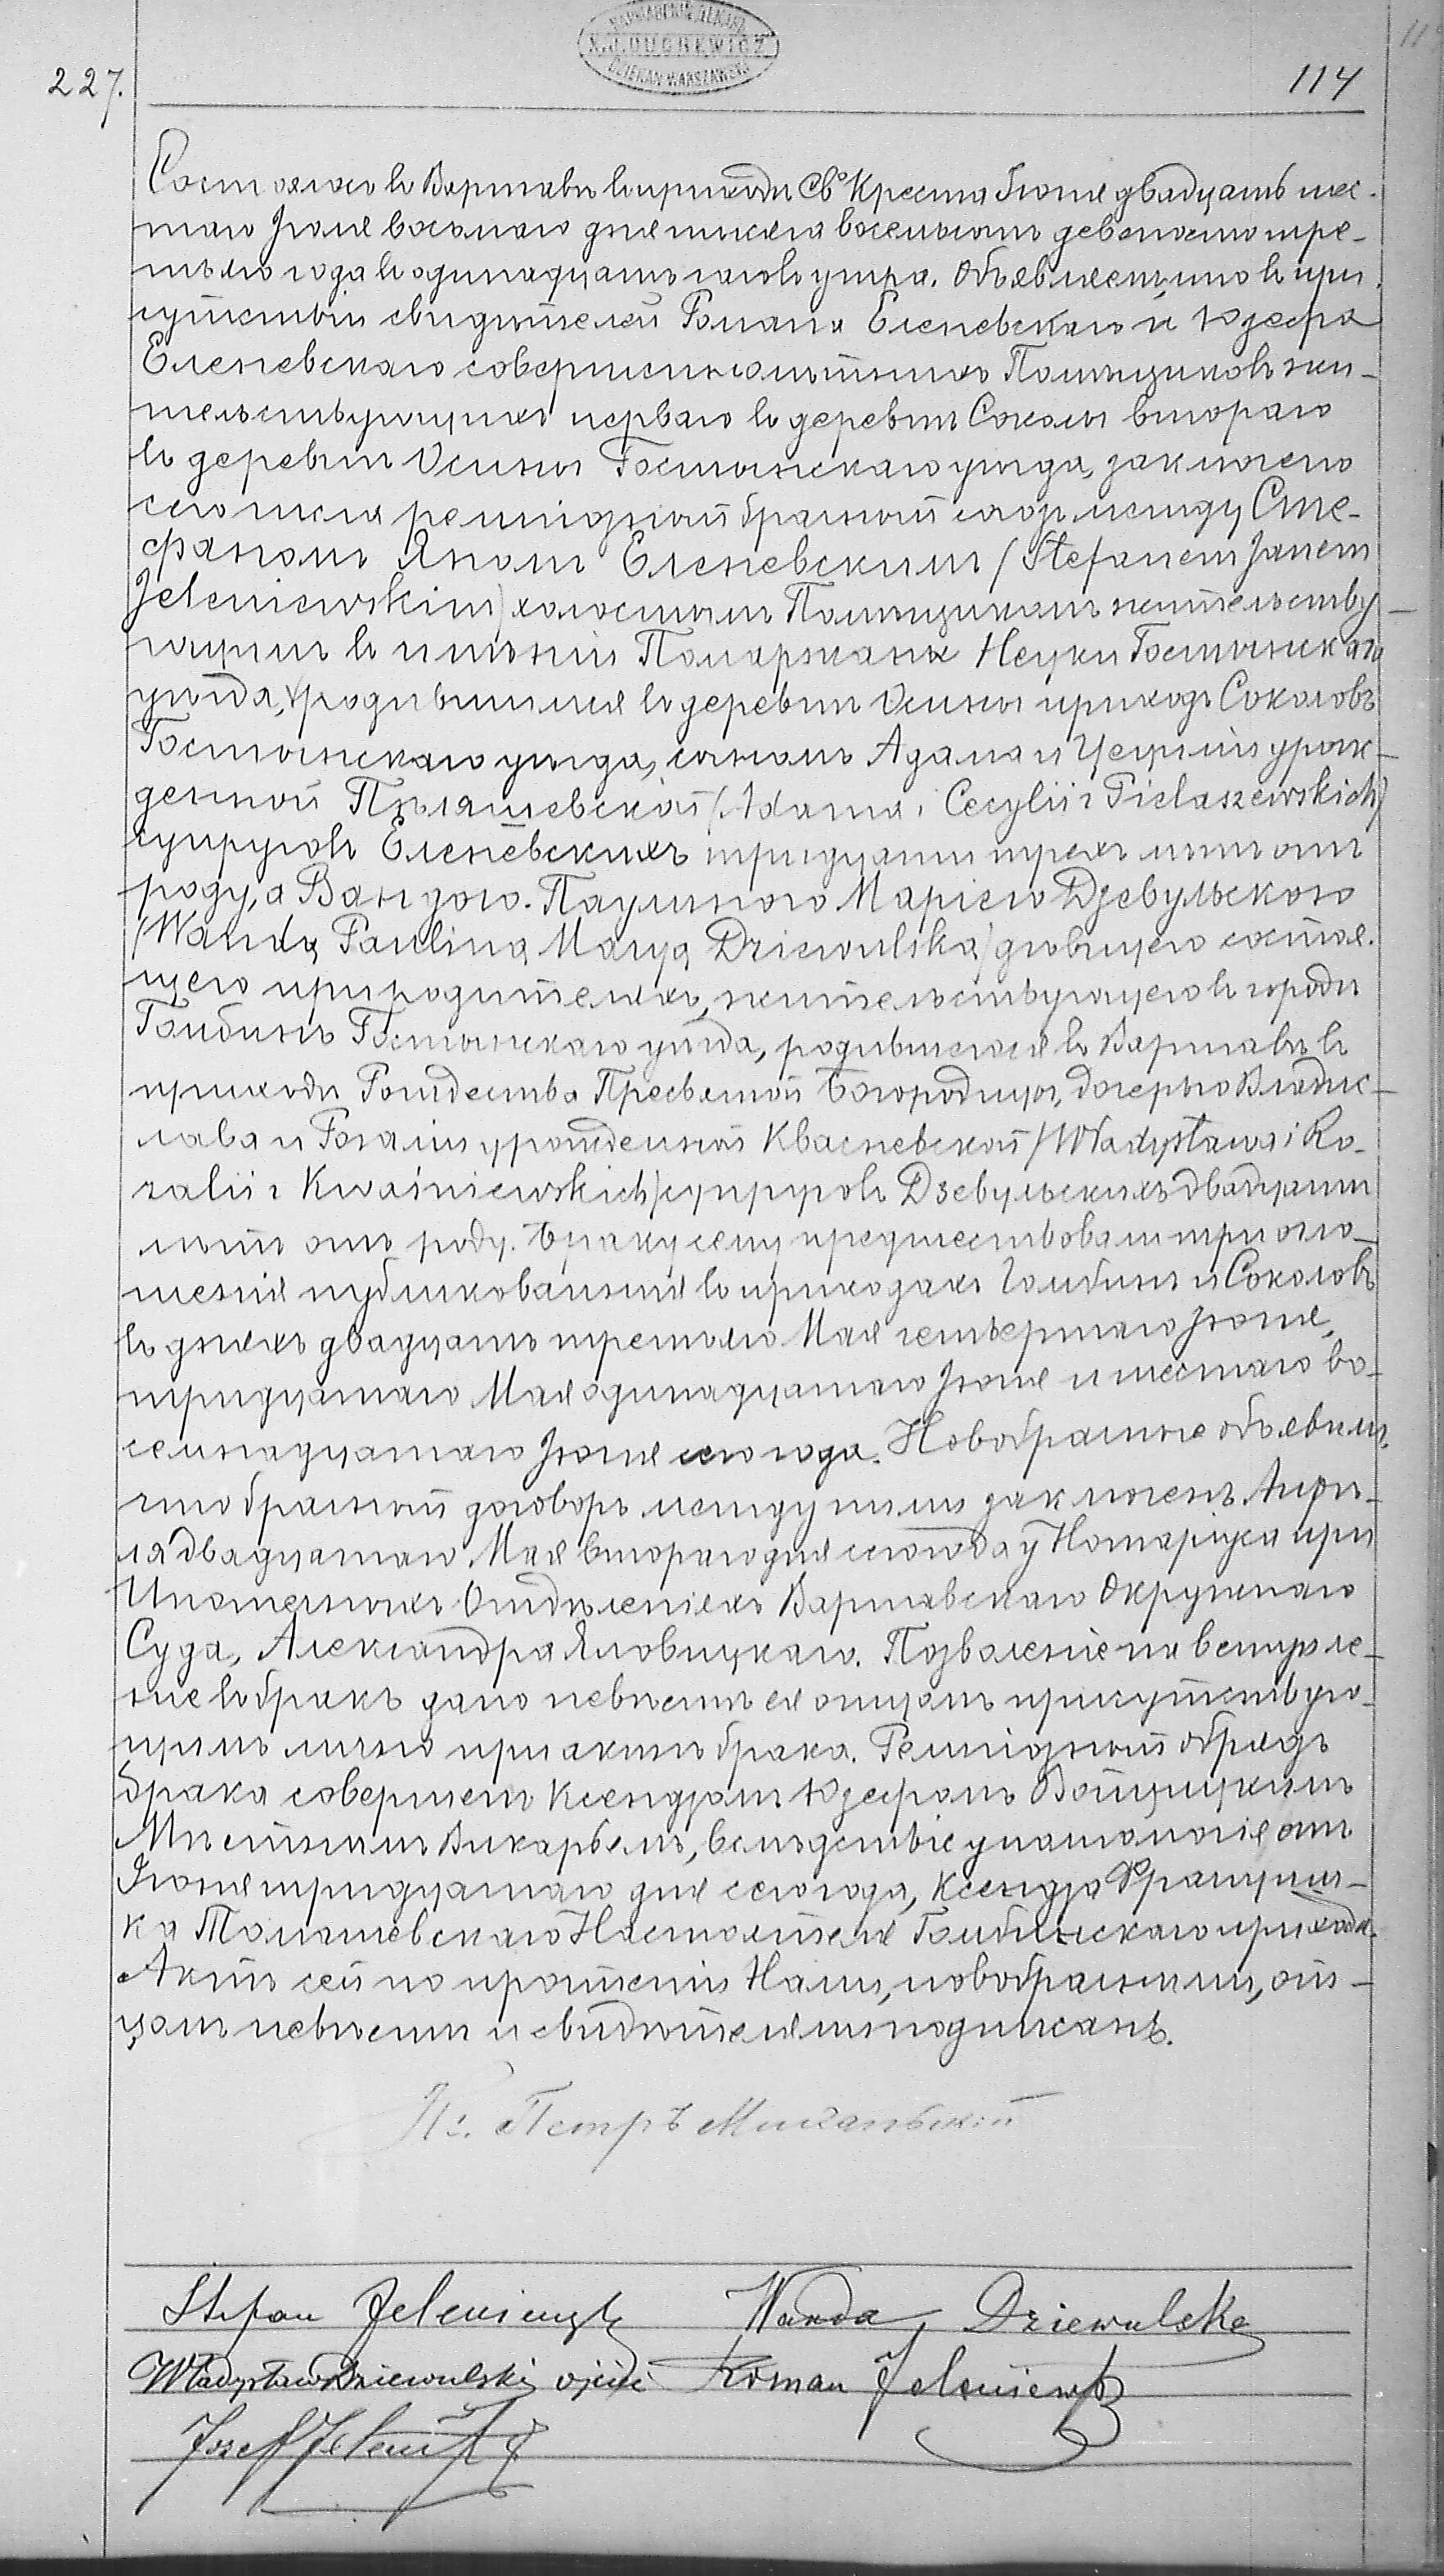 K. J. DUCHEWICZ
DZIEKAN WARSZAWSKI
227.
114
Состоялось въ Варшавѣ въ приходѣ Св. Креста Іюня двадцать шес-
таго Іюля восьмаго дня тысяча восемьсотъ девяносто тре-
тьяго года въ одинадцать часовъ утра. Объявляемъ, что въ при-
сутствіи свидѣтелей Романа Еленевскаго и Юзефа
Еленевскаго совершеннолѣтнихъ Помѣщиковъ жи-
тельствующихъ перваго въ деревнѣ Соколы втораго
въ деревнѣ Осины Гостынскаго уѣзда, заключено
сего числа религіозный брачный союзъ между Сте-
фаномъ Яномъ Еленевскимъ /Stefanem Janem
Jeleniewskim/ холостымъ Помѣщикомъ жительству-
ющимъ въ имѣніи Помаржанки Гостынскаго
уѣзда, родившимся въ деревнѣ Осины приходъ Соколовъ
Гостынскаго уѣзда, сыномъ Адама и Цециліи урож-
денной Пѣляшевской /Adama i Cecylii z Pielaszewskich/
супруговъ Еленевскихъ тридцати трехъ лѣтъ отъ
роду, а Вандою Паулиною Маріею Дзевульскою
/Wandą Pauliną Maryą Dziewulską/ дѣвицею состоя-
щею при родителяхъ, жительствующею въ городѣ
Гомбинъ Гостынскаго уѣзда, родившеюся въ Варшавѣ въ
приходѣ Рождества Пресвятой Богородицы, дочерью Владис-
лава и Розаліи урожденной Квасневской /Władysława i Ro-
zalii z Kwaśniewskich/ супруговъ Дзевульскихъ двадцати
лѣтъ отъ роду. Браку сему предшествовали три огло-
шенія публикованныя въ приходахъ Гомбинъ и Соколовъ
въ дняхъ двадцать третьяго Мая четвертаго Іюня,
тридцатаго Мая одинадцатаго Іюня и шестаго во-
семнадцатаго Іюня сего года. Новобрачные объявили,
что брачный договоръ между ними заключенъ Апрѣ-
ля двадцатаго Мая втораго дня сего года у Нотаріуса при
Ипотечныхъ Отдѣленіяхъ Варшавскаго Окружнаго
Суда, Александра Яловицкаго. Позволеніе на вступле-
ніе въ бракъ дано невѣстѣ ея отцомъ присутствую-
щимъ лично при актѣ брака. Религіозный обрядъ
брака совершенъ Ксендзомъ Юзефомъ Войцицкимъ
Мѣстнымъ Викаріемъ, вслѣдствіе уполномочія отъ
Іюня тридцатаго дня сего года, Ксендза Францишка
-ка Томашевскаго Настоятеля Гомбинскаго прихода.
Актъ сей по прочтеніи Нами, новобрачными, от-
цомъ невѣсты и свидѣтелями подписанъ.
Кс. Петръ
Stefan Jeleniewski Wanda Dziewulska
Władysław Dziewulski ojciec Roman Jeleniewski
Józef Jeleniewski